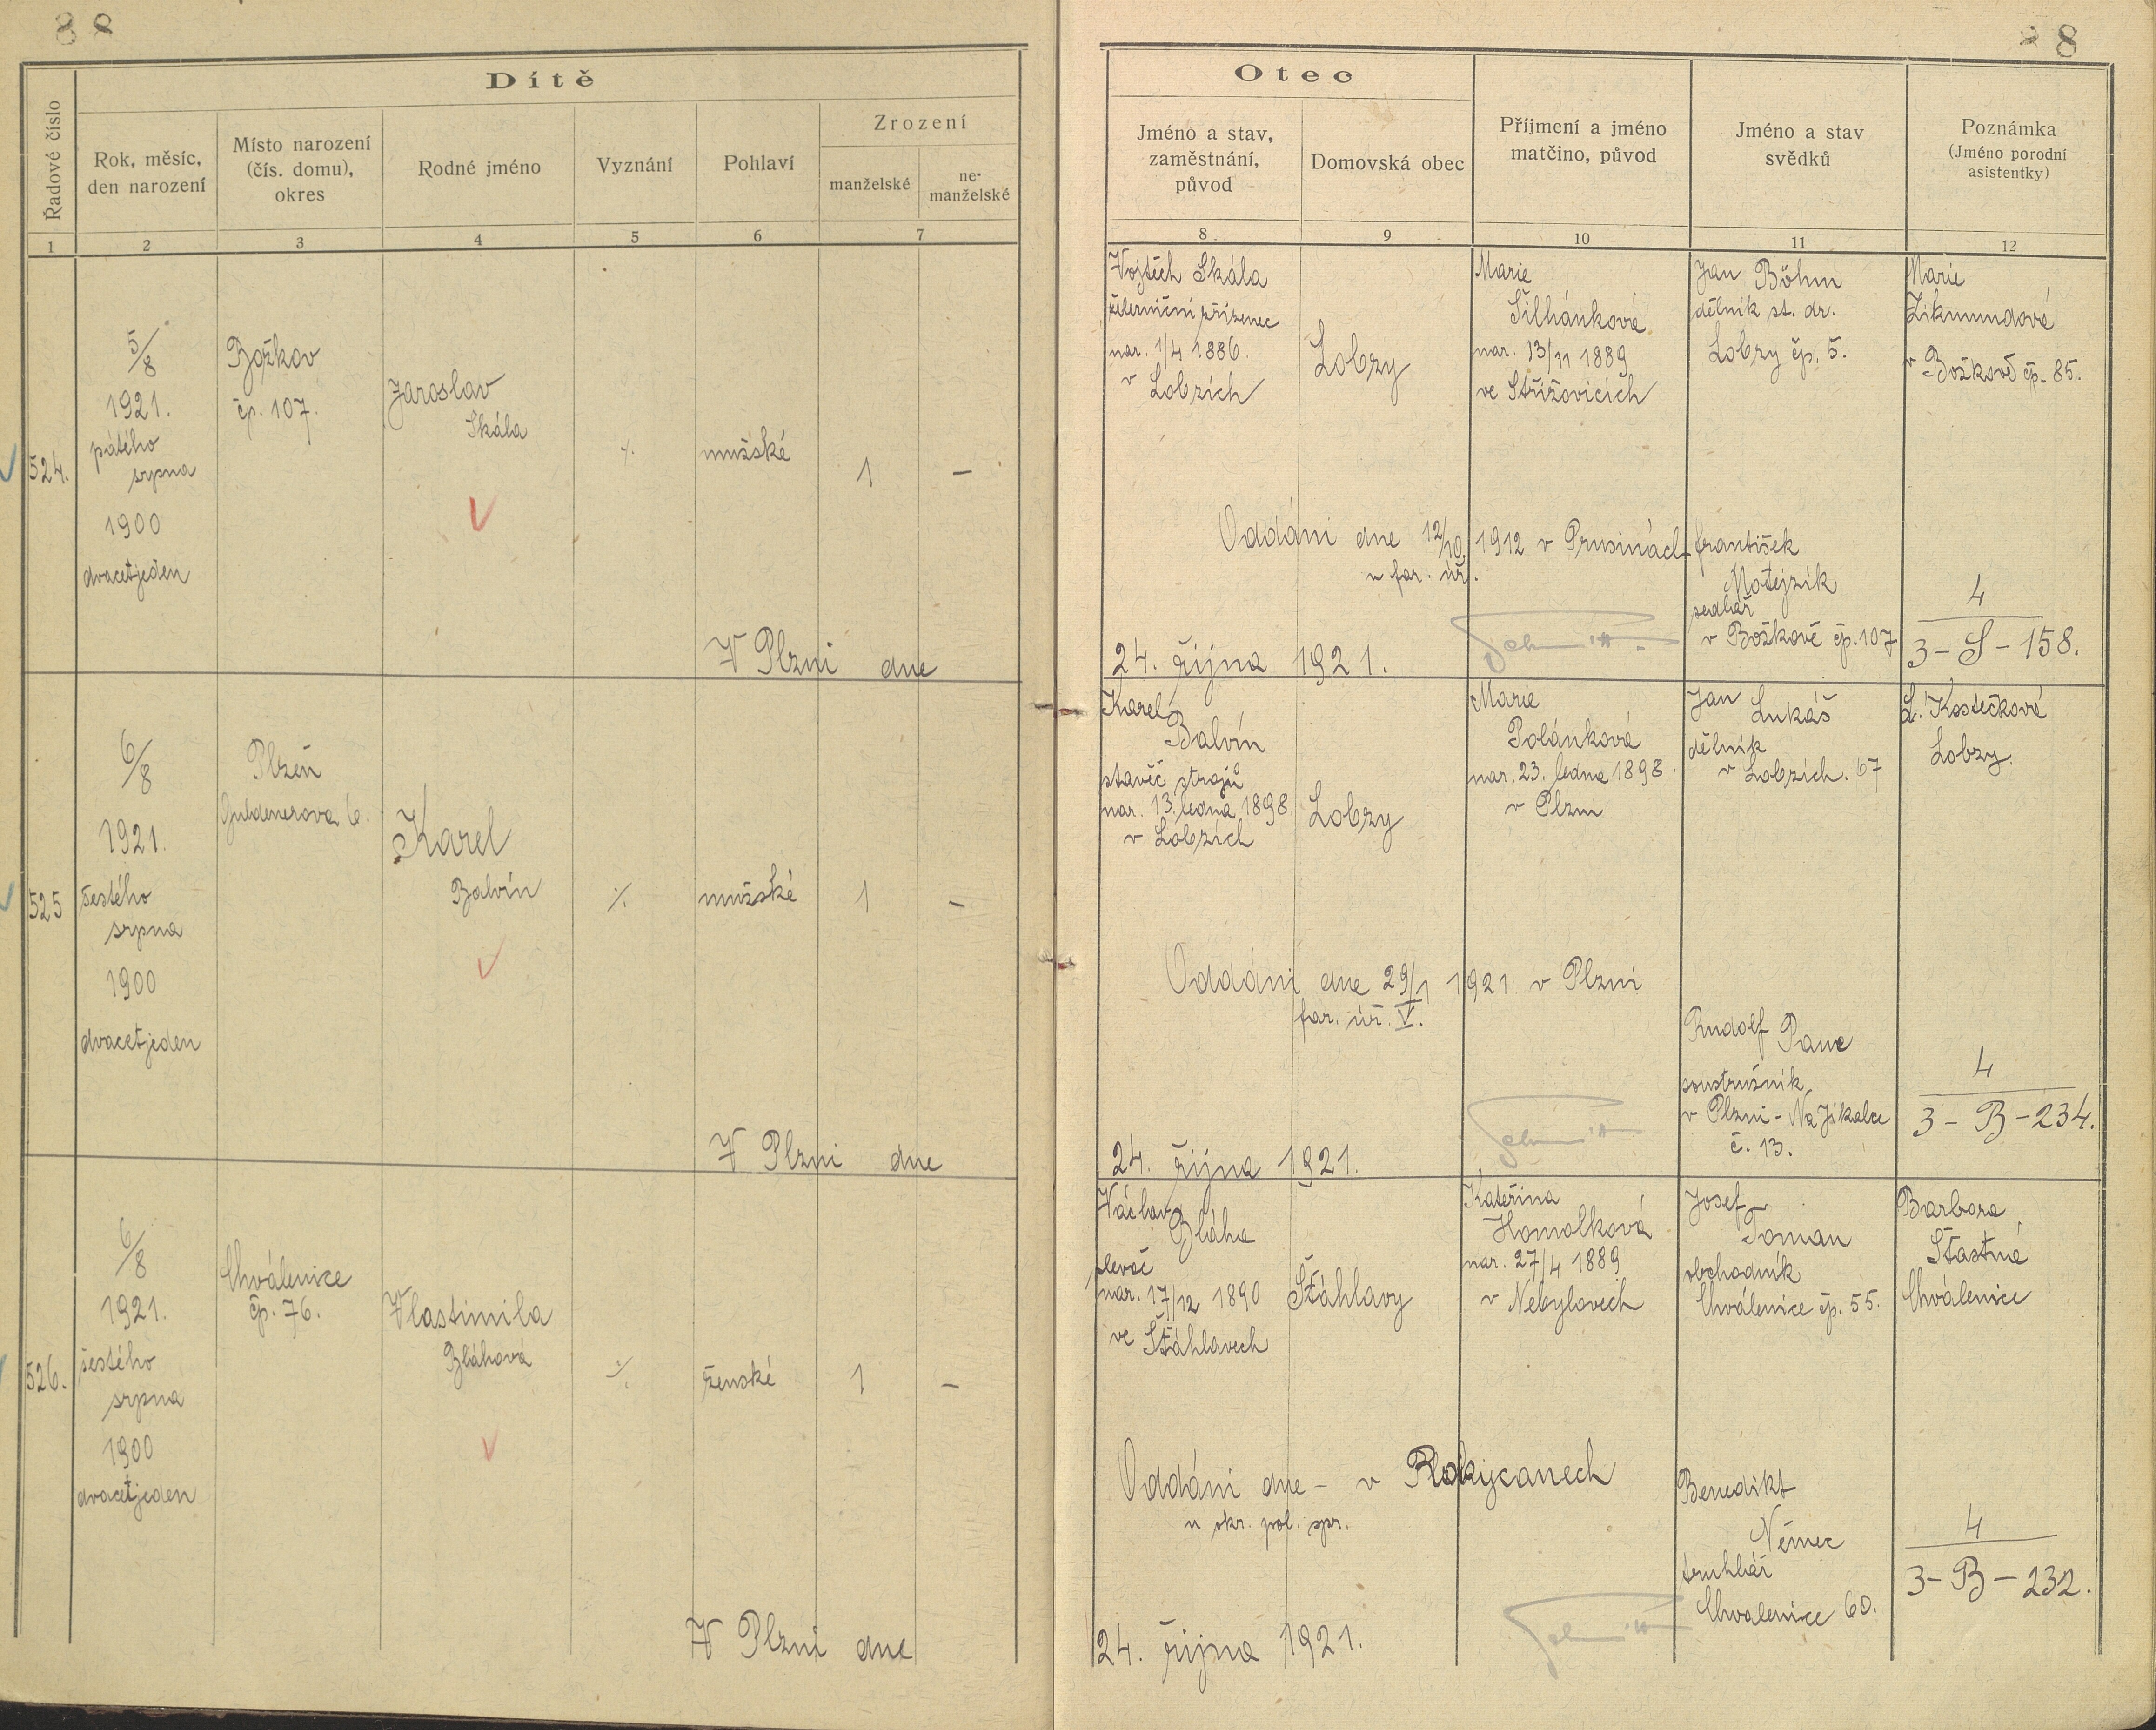 8 8
8
Dítě
Řadové číslo
Rok, měsíc,
den narození
Místo narození
(čís. domu),
okres
Rodné jméno
Vyznání
Pohlaví
Zrození
manželské
ne-
manželské
1 2 3 4 5 6 7
Otec
Jméno a stav,
zaměstnání,
původ
Domovská obec
Příjmení a jméno
matčino, původ
Jméno a stav
svědků
Poznámka
(Jméno porodní
asistentky)
8 9 10 11 12
524.
5/8
1921.
pátého
srpna
1900
dvacetjeden
Božkov
čp. 107.
Jaroslav
Skála
⁒
mužské
1
–
V Plzni dne
Vojtěch Skála
železniční zřízenec
nar. 1/4 1886.
v Lobzích
Lobzy
Marie
Šilhánková
nar. 13/11 1889
ve Střížovicích
Jan Böhm
dělník st. dr.
Lobzy čp. 5.
Marie
Zikmundová
v Božkově čp. 85.
Oddáni dne 12/10. 1912 v Prusinách
u far. úř.
František
Motejzík
sedlář
v Božkově čp. 107
4
3 – S – 158.
24. října 1921.
525
6/8
1921.
šestého
srpna
1900
dvacetjeden
Plzeň
Guldenerova 6.
Karel
Balvín
⁒
mužské
1
–
V Plzni dne
Karel
Balvín
stavěč strojů
nar. 13. ledna 1898.
v Lobzích
Lobzy
Marie
Polánková
nar. 23. ledna 1898.
v Plzni
Jan Lukáš
dělník
v Lobzích. 67
L. Kostečková
Lobzy.
Oddáni dne 29/1 1921 v Plzni
far. úř. V.
Rudolf Panc
soustružník
v Plzni - Na Jíkalce
č. 13.
4
3 – B – 234.
24. října 1921.
526.
6/8
1921.
šestého
srpna
1900
dvacetjeden
Chválenice
čp. 76.
Vlastimila
Bláhová
⁒
ženské
1
–
V Plzni dne
Václav
Bláha
slevač
nar. 17/12 1890
ve Šťáhlavech
Šťáhlavy
Kateřina
Homolková
nar. 27/4 1889
v Nebylovech
Josef
Toman
obchodník
Chválenice čp. 55.
Barbora
Šťastná
Chválenice
Oddáni dne – v Rokycanech
u okr. pol. spr.
Benedikt
Němec
truhlář
Chvalenice 60.
4
3 – B – 232.
24. října 1921.